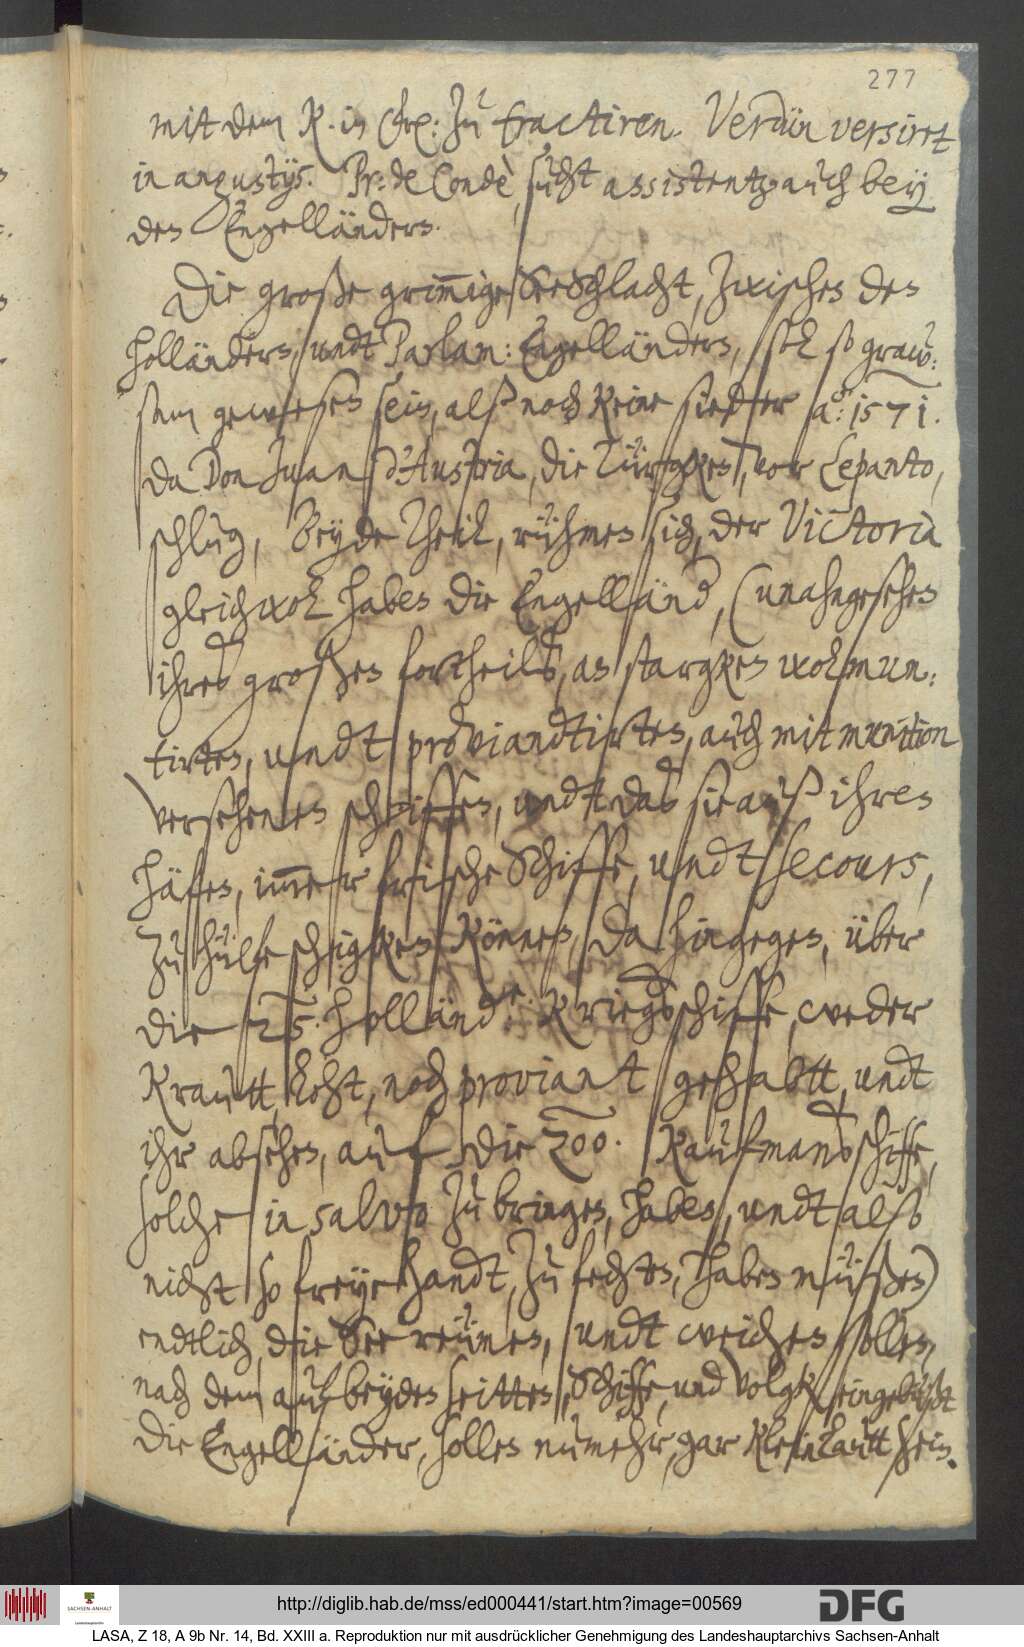 277
mit dem K. in Ch: zu tractiren. Verdün versirt
in angustijs. Pr: de Condè, sucht assistentz auch bey
den Engelländern.
Die große grimmige Seeschlacht, zwischen den
Holländern, undt Parlam: Engelländern, soll so graw:
sam gewesen sein, alß noch keine sieder ao: 1571.
da Don Juan d'Austria, die Türgken, vor Lepanto,
schlug, Beyde Theil, rühmen sich, der Victoria
gleichwol haben die Engelländ, (unangesehen
ihres großen fortheils, an stargken wolmun:
tirten, undt proviandtirten, auch mit munition
versehenen schiffen, undt das sie auß ihren
häfen, immer frische Schiffe, undt secours,
zu hülfe schigken können, da hingegen, über
die 25. Holländ. Kriegsschiffe, weder
Krautt, Loht, noch proviant gehabtt, undt
ihr absehen, auf die 200. Kaufmansschiffe,
solche in salvo zu bringen, haben, undt also
nicht so freye handt, zu fechten, haben müßen)
endtlich, die See reümen, undt weichen sollen,
nach dem auf beyden seitten, Schiffe, und Volgk eingebüßt
die Engelländer, sollen numehr, gar kleinlautt sein.
SACHSEN-ANHALT
Landeshauptarchiv
http://diglib.hab.de/mss/ed000441/start.htm?image=00569
DFG
LASA, Z 18, A 9b Nr. 14, Bd. XXIII a. Reproduktion nur mit ausdrücklicher Genehmigung des Landeshauptarchivs Sachsen-Anhalt